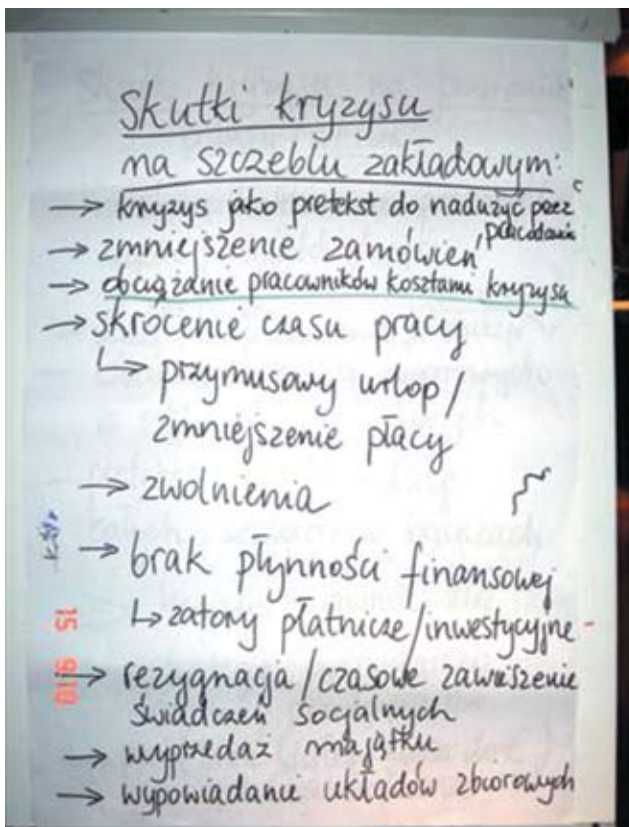 Skutki kryzysu
na szczeblu zakładowym:
→ kryzys jako pretekst do nadużyć przez
pracodawcę
→ zmniejszenie zamówień
→ obciążanie pracowników kosztami kryzysu
→ skrócenie czasu pracy
↳ przymusowy urlop/
zmniejszenie płacy
→ zwolnienia
→ brak płynności finansowej
↳ zatory płatnicze/inwestycyjne
→ rezygnacja/czasowe zawieszenie
świadczeń socjalnych
→ wyprzedaż majątku
→ wypowiadanie układów zbiorowych